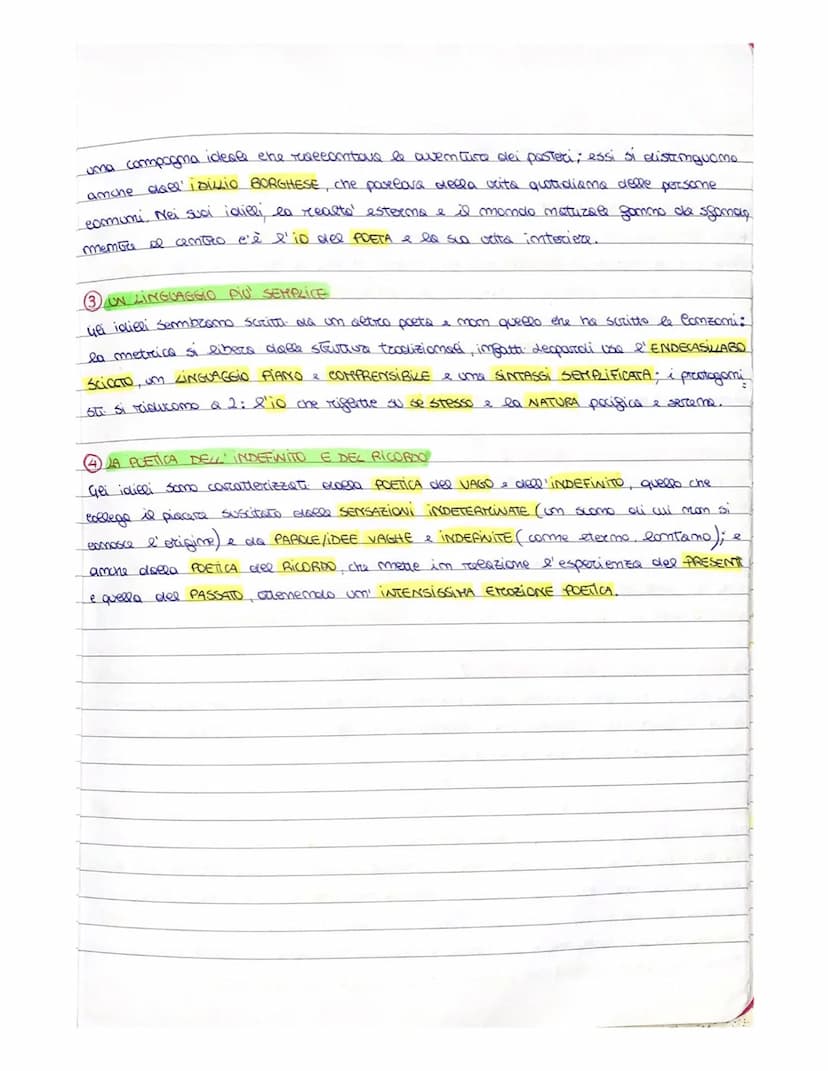 una campagna ideale che raccontava le avventure dei pastori; essi si distinguono
anche dall'iDiLLIO BORGHESE, che parlava della vita quotidiana delle persone
comuni. Nei suoi idilli, la realtà esterna e il mondo naturale fanno da sfondo,
mentre al centro c'è l'iO del POETA e la sua vita interiore.
③ UN LiNGUAGGIO PiÙ SEMPLICE
Gli idilli sembrano scritti da un altro poeta e non quello che ha scritto le Canzoni:
la metrica si libera dalle struttura tradizionali, infatti Leopardi usa l'ENDECASiLLABO
SCiOLTO, un LiNGUAGGIO PIANO e COMPRENSIBILE e una SiNTASSI SEMPLiFICATA; i protagoni
sti si riducono a 2: l'iO che riflette su SE STESSO e la NATURA pacifica e serena.
④ LA POETiCA DELL'iNDEFINITO E DEL RICORDO
Gli idilli sono caratterizzati dalla POETICA del VAGO e dell'iNDEFINITO, quello che
collega il piacere suscitato dalle SENSAZIONI iNDETERMINATE (un suono di cui non si
conosce l'origine) e da PAROLE/IDEE VAGHE e iNDEFINITE (come eterno, lontano); e
anche dalla POETICA del RICORDO, che mette in relazione l'esperienza del PRESENTE
e quella del PASSATO, ottenendo un'iNTENSISSIMA EMOZIONE POETICA.